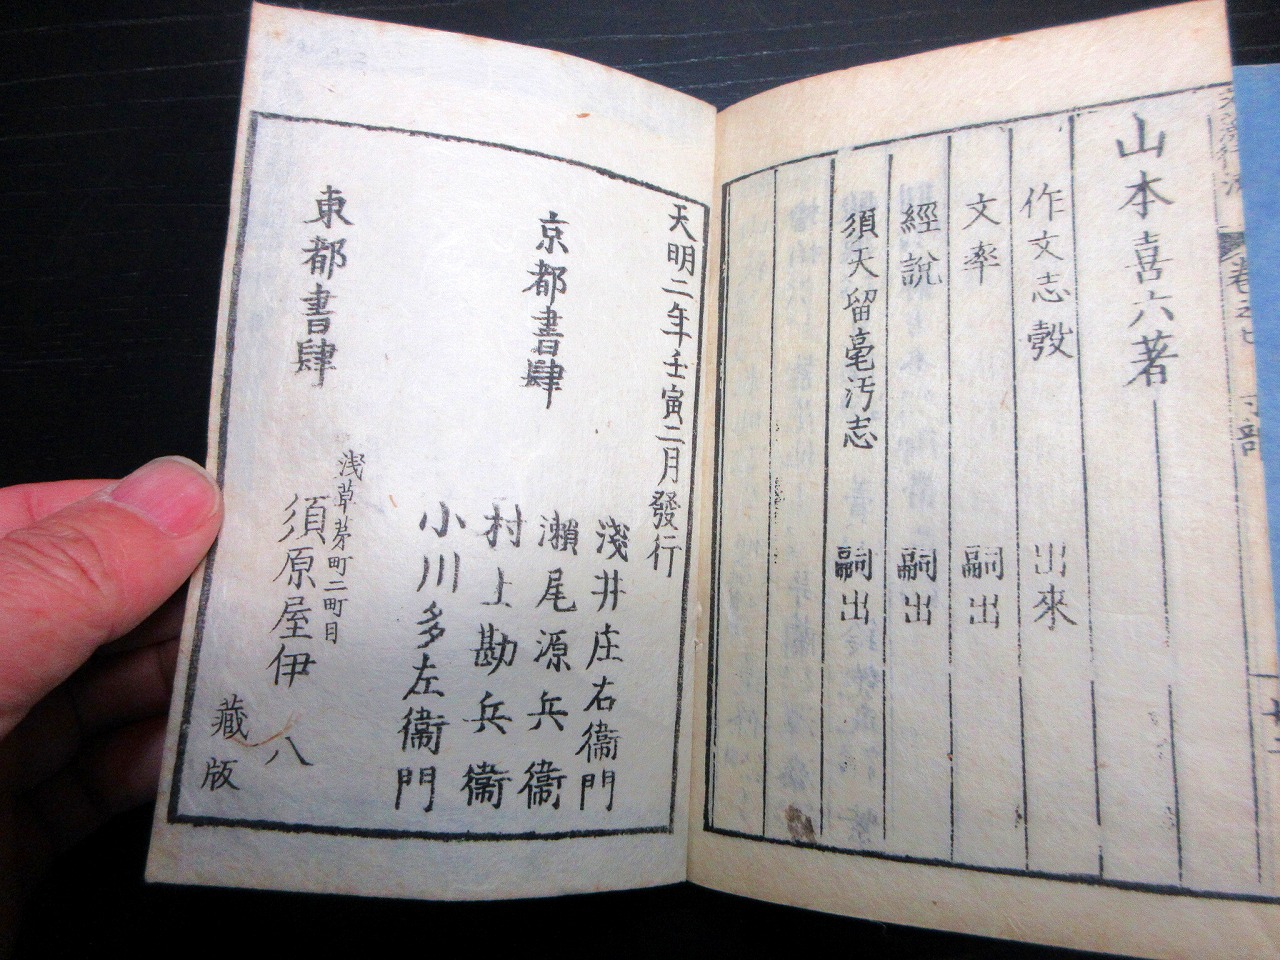 山本喜六著
作文志彀 出來
文率 嗣出
經說 嗣出
須天留毫汚志 嗣出
天明二年壬寅二月發行
京都書肆
淺井庄右衞門
瀨尾源兵衞
村上勘兵衞
小川多左衞門
東都書肆
浅草茅町二町目
須原屋伊八
藏版